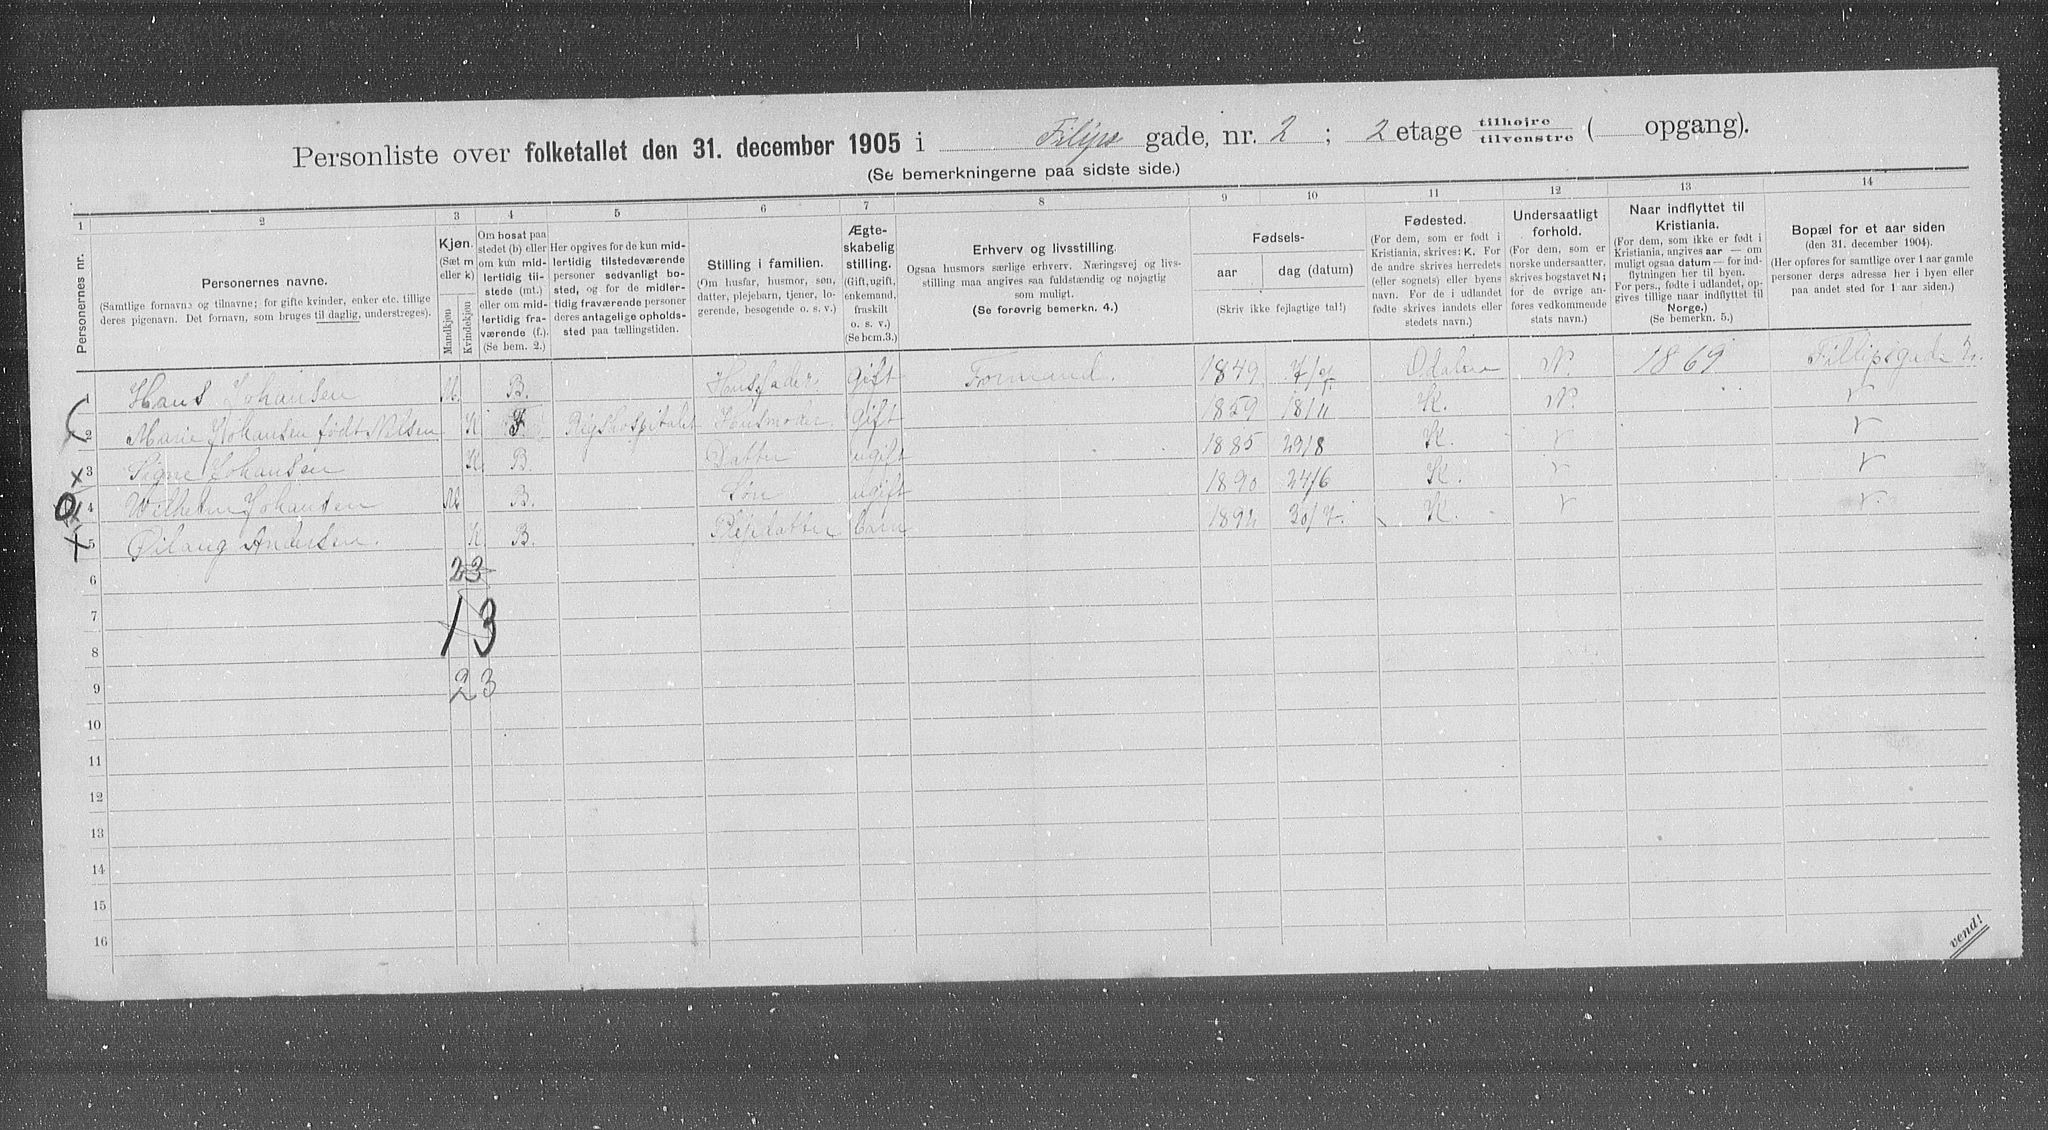 Personliste over folketallet den 31. december 1905 i Filips gade, nr. 2 ; 2 etage tilhøire / tilvenstre ( opgang).
(Se bemerkningerne paa sidste side.)
1 2 3 4 5 6 7 8 9 10 11 12 13 14
Personernes nr.
Personernes navne.
(Samtlige fornavne og tilnavne; for gifte kvinder, enker etc. tillige deres pigenavn. Det fornavn, som bruges til daglig, understreges).
Kjøn.
(Sæt m eller k)
Mandkjøn
Kvindekjøn
Om bosat paa stedet (b) eller om kun midlertidig tilstede (mt.) eller om midlertidig fraværende (f.). (Se bem. 2.)
Her opgives for de kun midlertidig tilstedeværende personer sedvanligt bosted, og for de midlertidig fraværende personer deres antagelige opholdssted paa tællingstiden.
Stilling i familien.
(Om husfar, husmor, søn, datter, plejebarn, tjener, logerende, besøgende o. s. v.)
Ægteskabelig stilling.
(Gift, ugift, enkemand, fraskilt o. s. v.) (Se bem. 3.)
Erhverv og livsstilling.
Ogsaa husmors særlige erhverv. Næringsvej og livsstilling maa angives saa fuldstændig og nøjagtig som muligt.
(Se forøvrig bemerkn. 4.)
Fødsels-
aar
dag (datum)
(Skriv ikke fejlagtige tal!)
Fødested.
(For dem, som er født i Kristiania, skrives: K. For de andre skrives herredets (eller sognets) eller byens navn. For de i udlandet fødte skrives landets eller stedets navn.)
Undersaatligt forhold.
(For dem, som er norske undersaatter, skrives bogstavet N; for de øvrige anføres vedkommende stats navn.)
Naar indflyttet til Kristiania.
(For dem, som ikke er født i Kristiania, angives aar — om muligt ogsaa datum — for indflytningen her til byen. For pers., fødte i udlandet, opgives tillige naar indflyttet til Norge.)
(Se bemerkn. 5.)
Bopæl for et aar siden
(den 31. december 1904).
(Her opføres for samtlige over 1 aar gamle personer deres adresse her i byen eller paa andet sted for 1 aar siden.)
1 Hans Johansen M. B. Husfader gift Formand. 1849 Odalen N. 1869 Fillipsgade 2.
2 Marie Johansen født Nilsen K F. Rigshospitalet Husmoder gift 1859 18/11 K. N.
3 Signe Johansen K. B. Datter ugift 1885 29/8 K.
4 Wilhelm Johansen M B. Søn ugift 1890 24/6 K.
5 Andersen. K. B. Plejedatter barn 30/7. K.
6 23
7 13
8
9 23
10
11
12
13
14
15
16
vend!